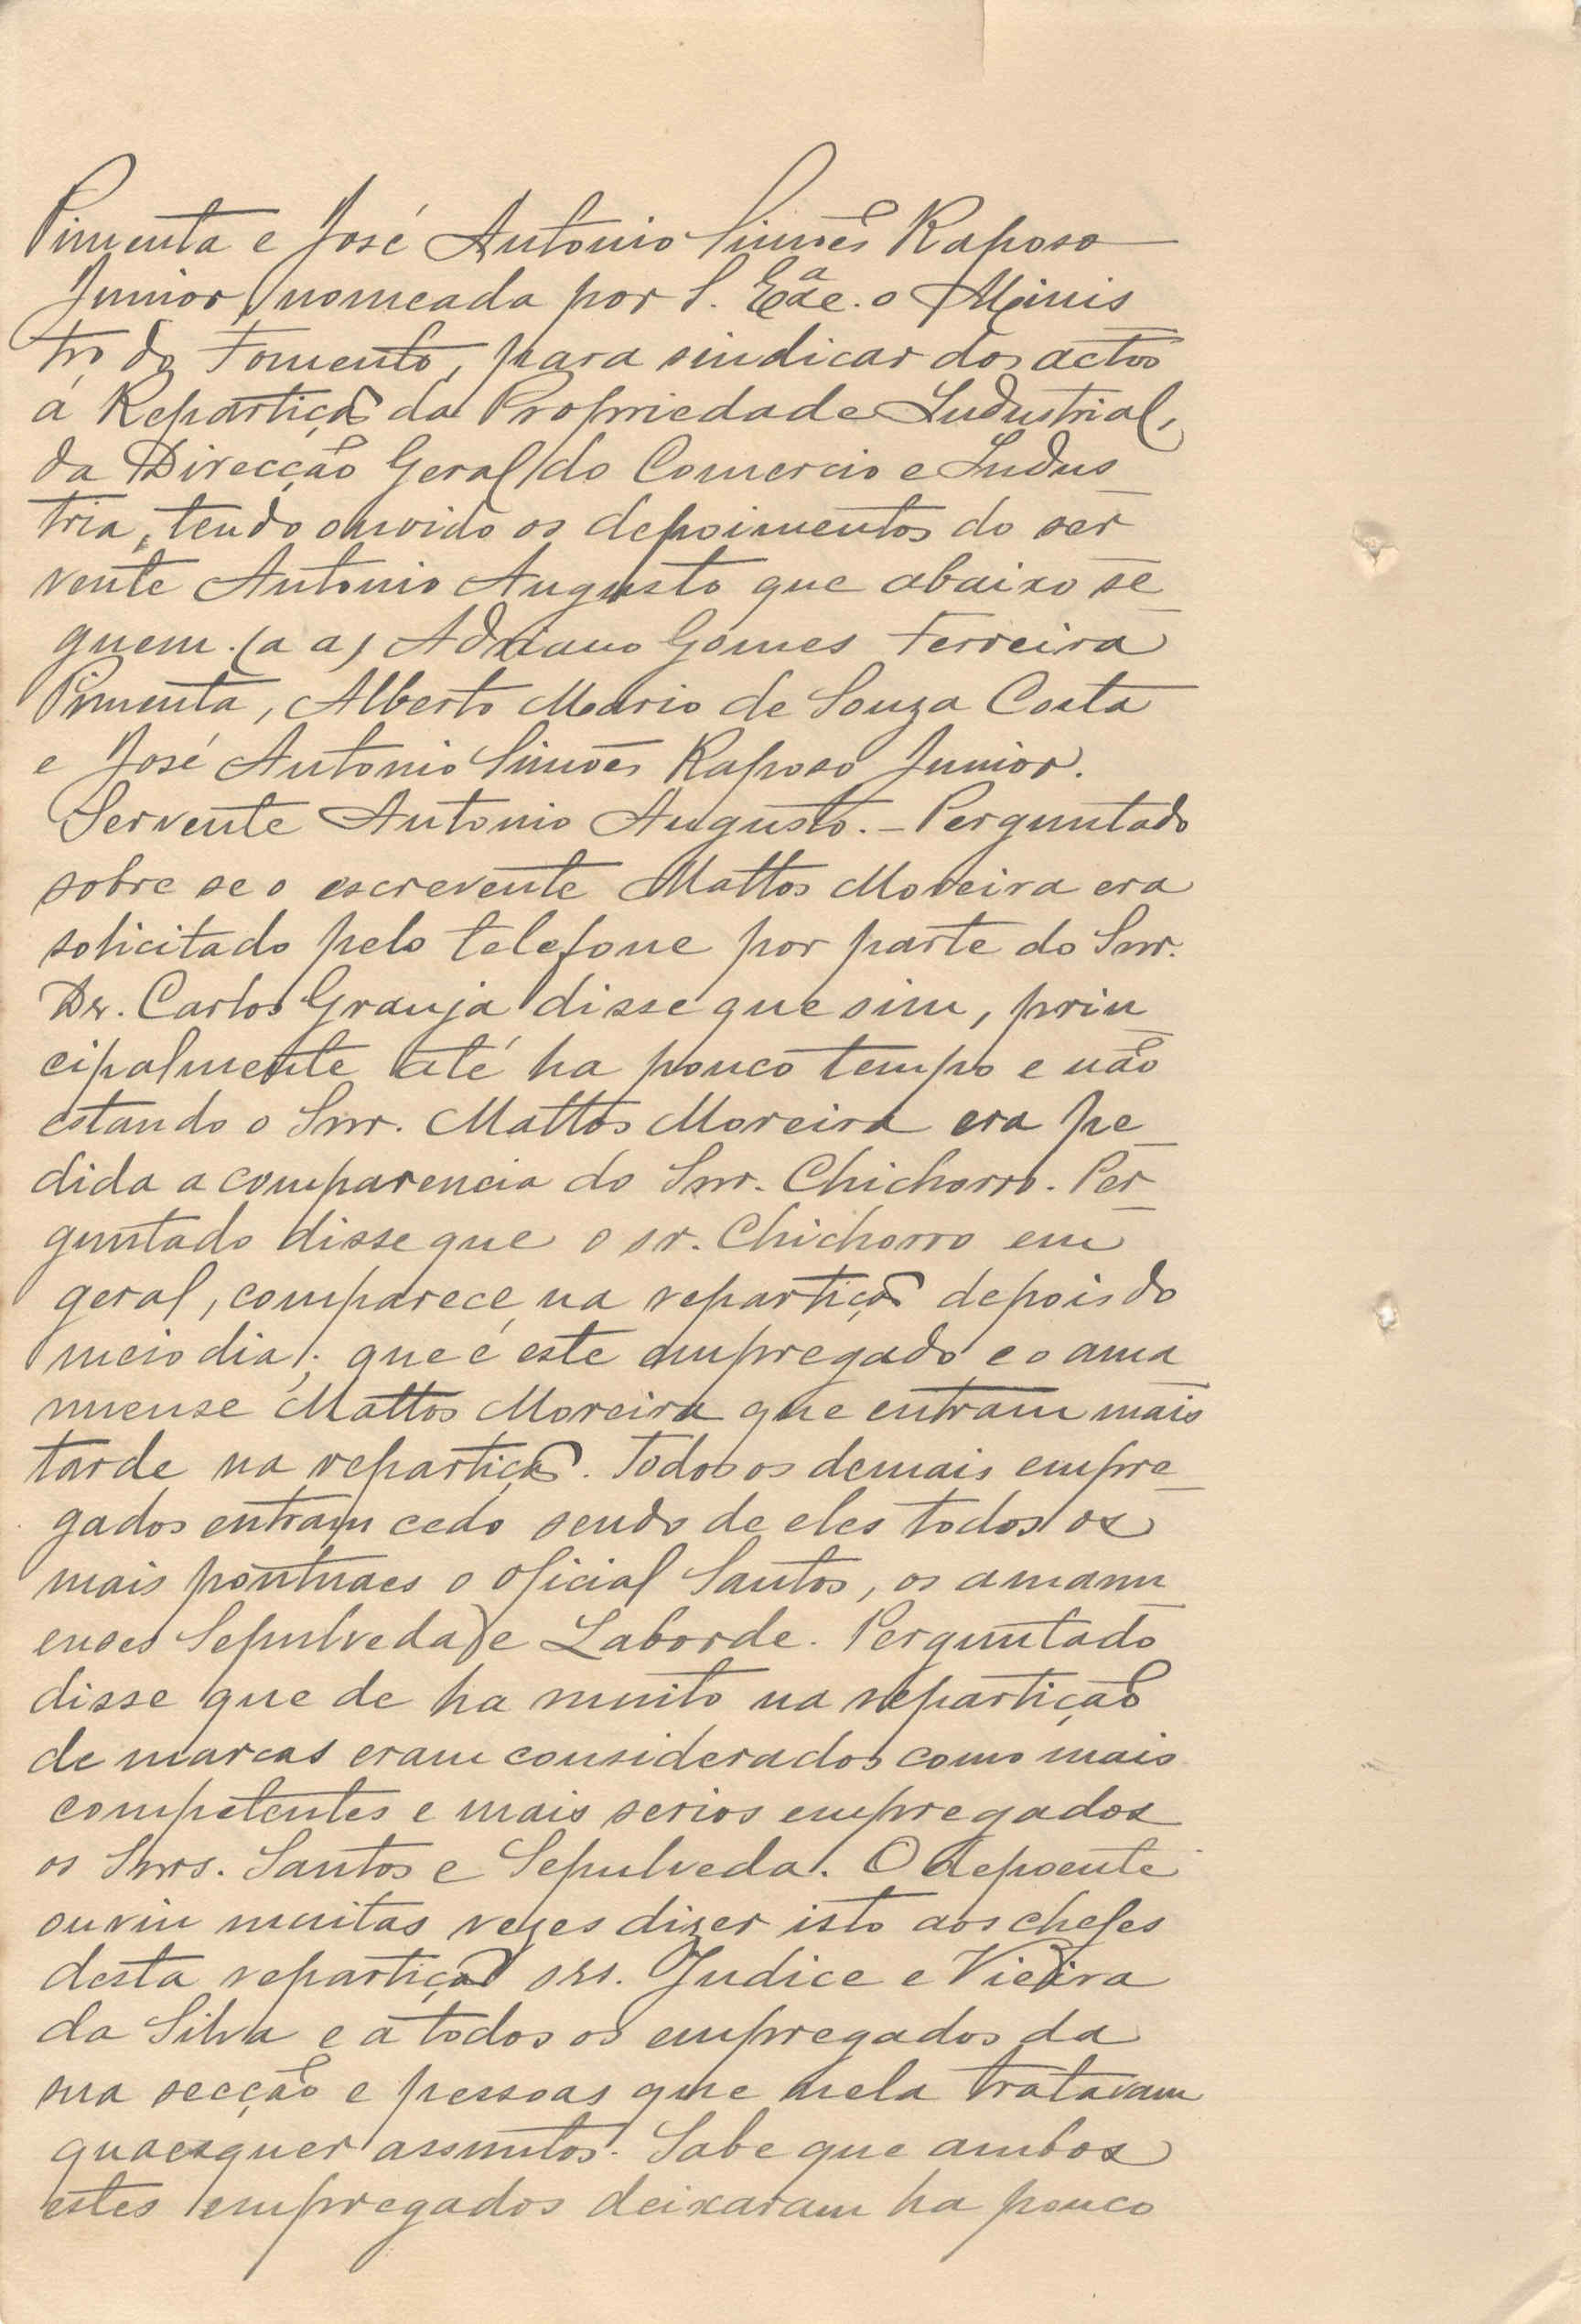 Pimenta e José Antonio Simões Raposo
Junior, nomeada por S. Exª. o Minis
tro do Fomento, para sindicar dos actos
á Repartição da Propriedade Industrial,
da Direcção Geral do Comercio e Indus
tria, tendo ouvido os depoimentos do ser
vente Antonio Augusto que abaixo se
guem. (a a) Adriano Gomes Ferreira
Pimenta, Alberto Mario de Souza Costa
e José Antonio Simões Raposo Junior.
Servente Antonio Augusto. – Perguntado
sobre se o escrevente Mattos Moreira era
solicitado pelo telefone por parte do Snr.
Dr. Carlos Granja disse que sim, prin
cipalmente até ha pouco tempo e não
estando o Snr. Mattos Moreira era pe
dida a comparencia do Snr. Chichorro. Per
guntado disse que o sr. Chichorro em
geral, comparece na repartição depois do
meio dia; que é este empregado e o ama
nuense Mattos Moreira que entram mais
tarde na repartição. Todos os demais empre
gados entram cedo sendo de eles todos os
mais pontuaes o oficial Santos, os amanu
enses Sepulveda e Laborde. Perguntado
disse que de ha muito na repartição
de marcas eram considerados como mais
competentes e mais serios empregados
os Snrs. Santos e Sepulveda. O depoente
ouviu muitas vezes dizer isto aos chefes
desta repartição srs. Judice e Vieira
da Silva e a todos os empregados da
sua secção e pessoas que nela tratavam
quaesquer assuntos. Sabe que ambos
estes empregados deixaram ha pouco